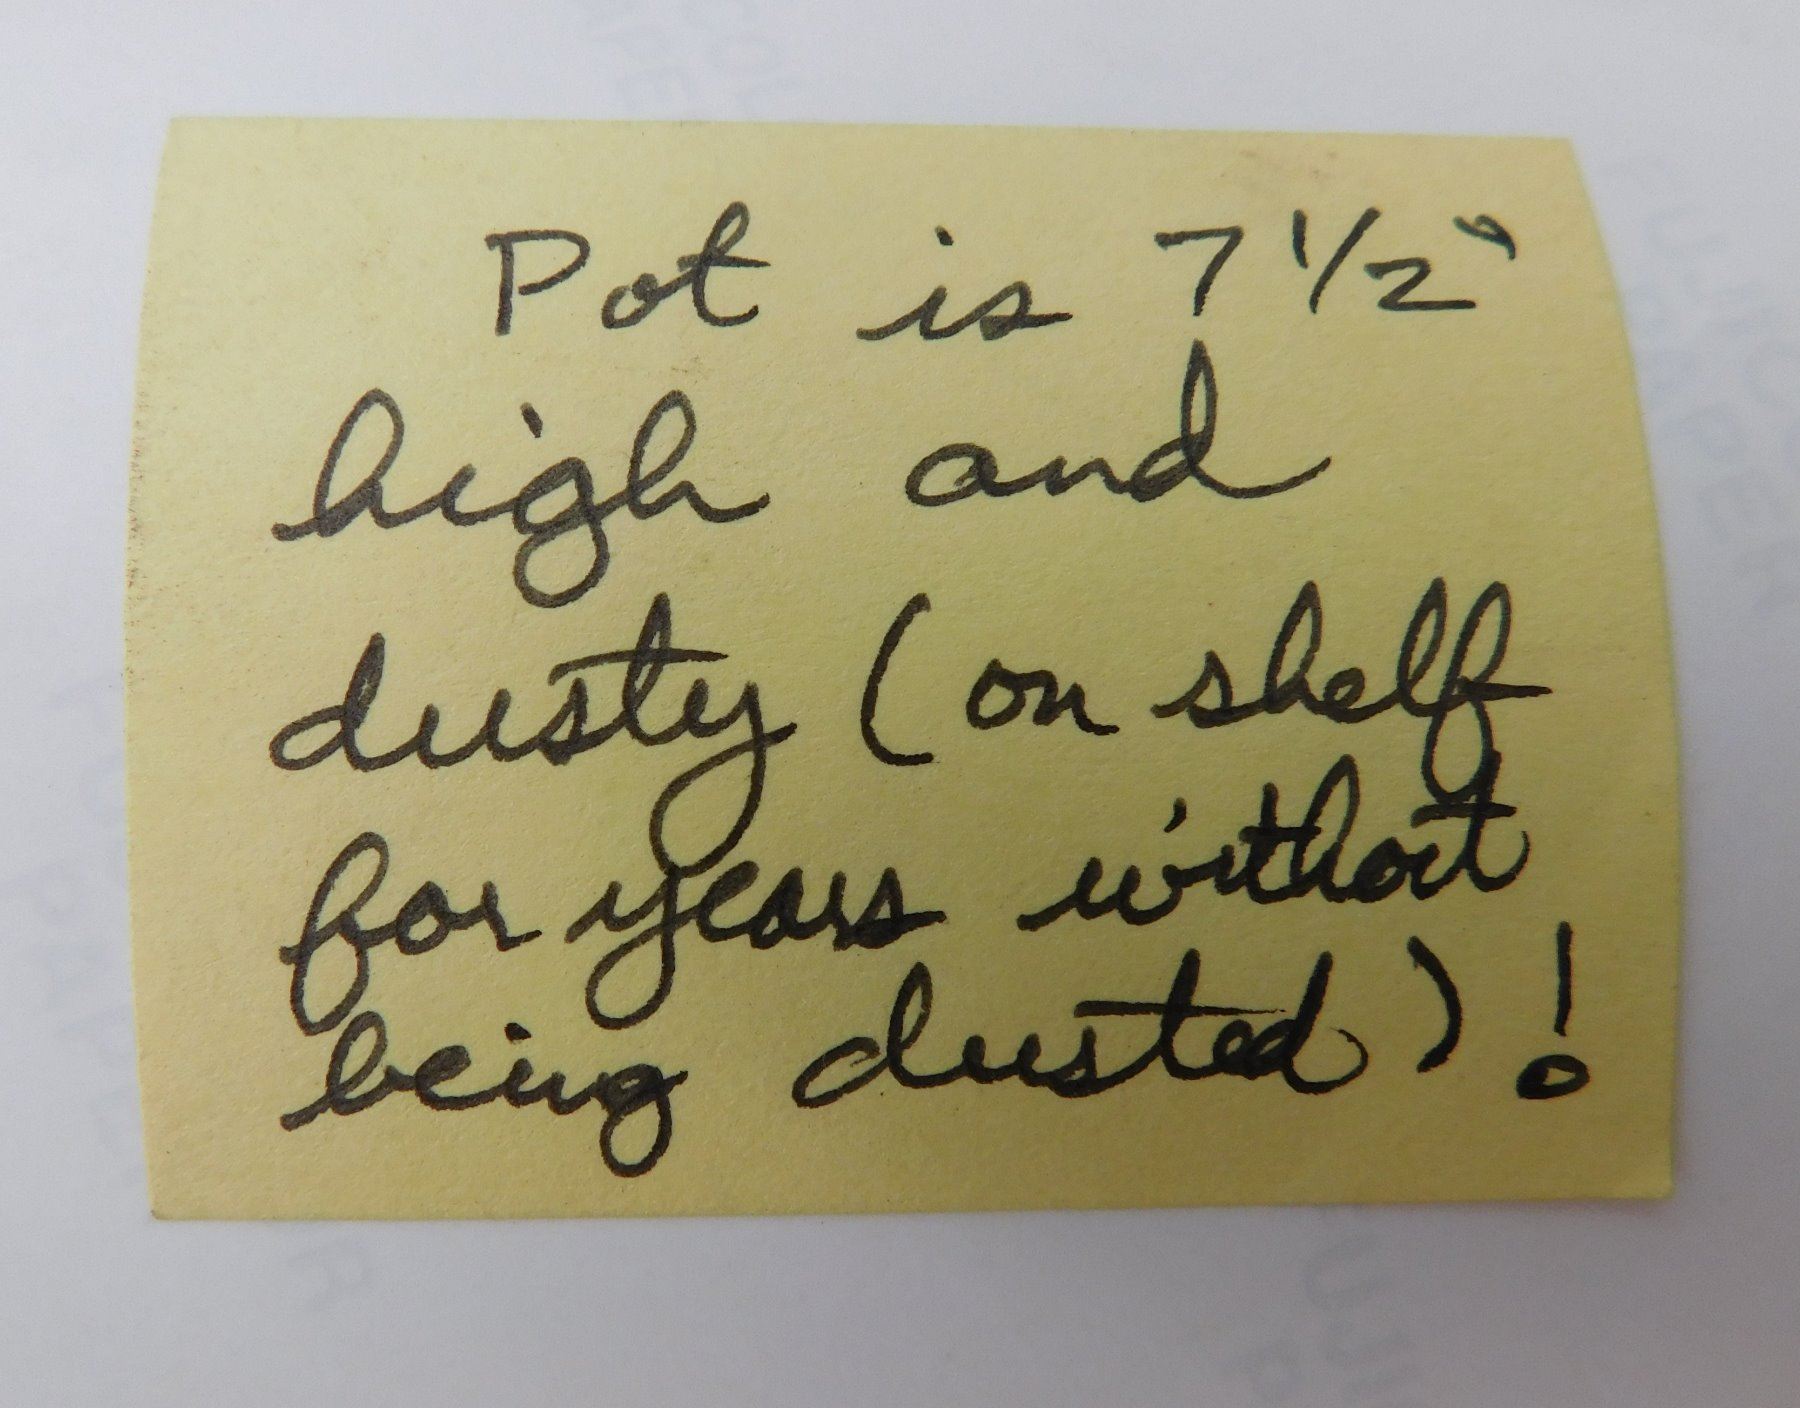 Pot is 7 1/2"
high and
dusty (on shelf
for years without
being dusted)!